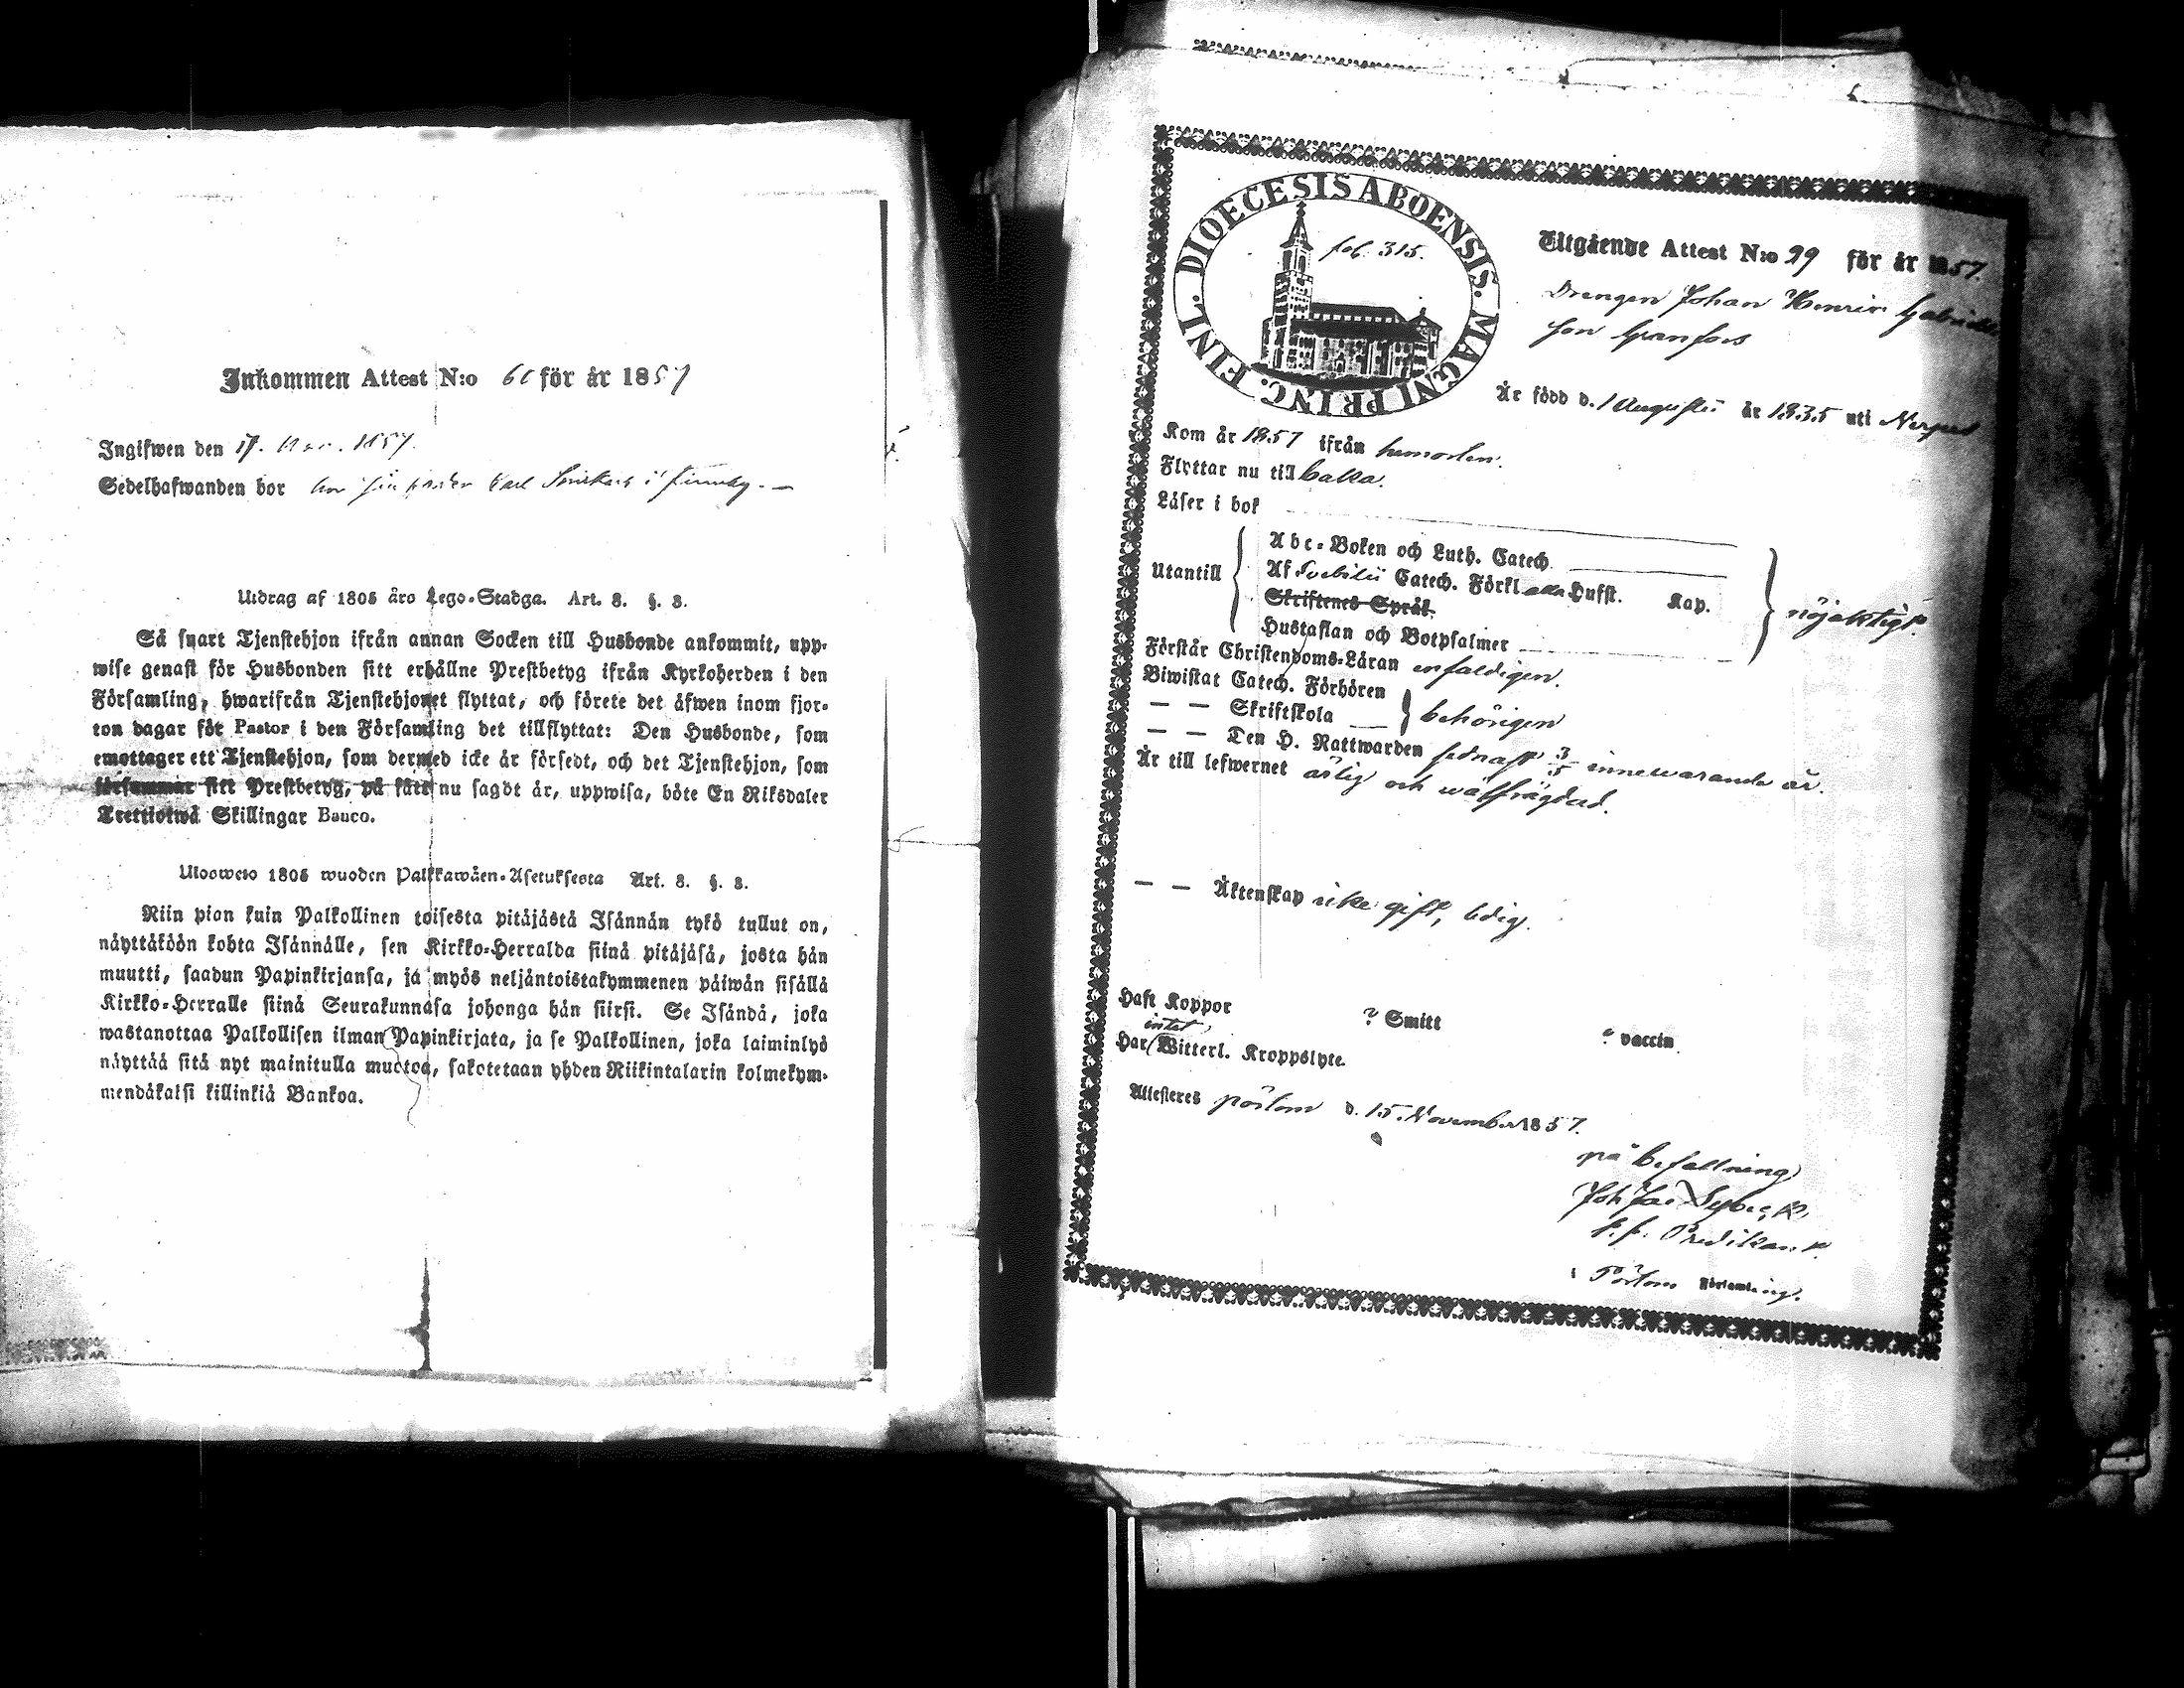 Inkommen Attest N:o 60 för år 1857
Ingifwen den 17. Nov. 1857.
Sedelhafwanden bor hos sin i
Utdrag af 1805 års Lego-Stadga. Art. 8. §. 3.
Så snart Tjenstehjon ifrån annan Socken till Husbonde ankommit, upp-
wise genast för Husbonden sitt erhållne Prestbetyg ifrån Kyrkoherden i den
Församling, hwarifrån Tjenstehjonet flyttat, och förete det äfwen inom fjor-
ton dagar för Pastor i den Församling det tillflyttat: Den Husbonde, som
emottager ett Tjenstehjon, som dermed icke är försedt, och det Tjenstehjon, som
försummar sitt Prestbetyg, på sätt nu sagdt är, uppwisa, böte En Riksdaler
Trettiotwå Skillingar Banco.
Ulosweto 1805 wuoden Palkkawäen-Asetuksesta Art. 8. §. 3.
Niin pian kuin Palkollinen toisesta pitäjästä Isännän tykö tullut on,
näyttäköön kohta Isännälle, sen Kirkko-Herralda siinä pitäjäsä, josta hän
muutti, saadun Papinkirjansa, ja myös neljäntoistakymmenen päiwän sisällä
Kirkko-Herralle siinä Seurakunnasa johonga hän siirsi. Se Isändä, joka
wastanottaa Palkollisen ilman Papinkirjata, ja se Palkollinen, joka laiminlyö
näyttää sitä nyt mainitulla muotoa, sakotetaan yhden Riikintalarin kolmekym-
mendäkaksi killinkiä Bankoa.
DIOECESIS ABOENSIS. MAGNI PRINC. FINL.
fol. 315.
Utgående Attest N:o 29 för år 1857.
Drengen Johan Henric Gabriels
son Granfors
Är född d. 1 Augusti år 1835 uti Nerpes
Kom år 1857 ifrån hemorten.
Flyttar nu till Calla.
Läser i bok
Utantill
Abc-Boken och Luth. Catech.
Af Svebilii Catech. Förkl. alla Hufst. Kap.
Skriftenes Språk.
Hustaflan och Botpsalmer
nöjaktigt.
Förstår Christendoms-Läran enfaldigen.
Biwistat Catech. Förhören
— — Skriftskola
behörigen
— — Den H. Nattwarden sednast 3/5 innewarande år.
Är till lefwernet ärlig och wälfrägdad.
— — Äktenskap icke gift, ledig.
Haft Koppor ? Smitt ? vaccin
intet
Har Witterl. Kroppslyte.
Attesteres Pörtom d. 15. November 1857.
på befallning
Joh Jac Nybeck
t. f. Predikant
i Pörtom Församling.